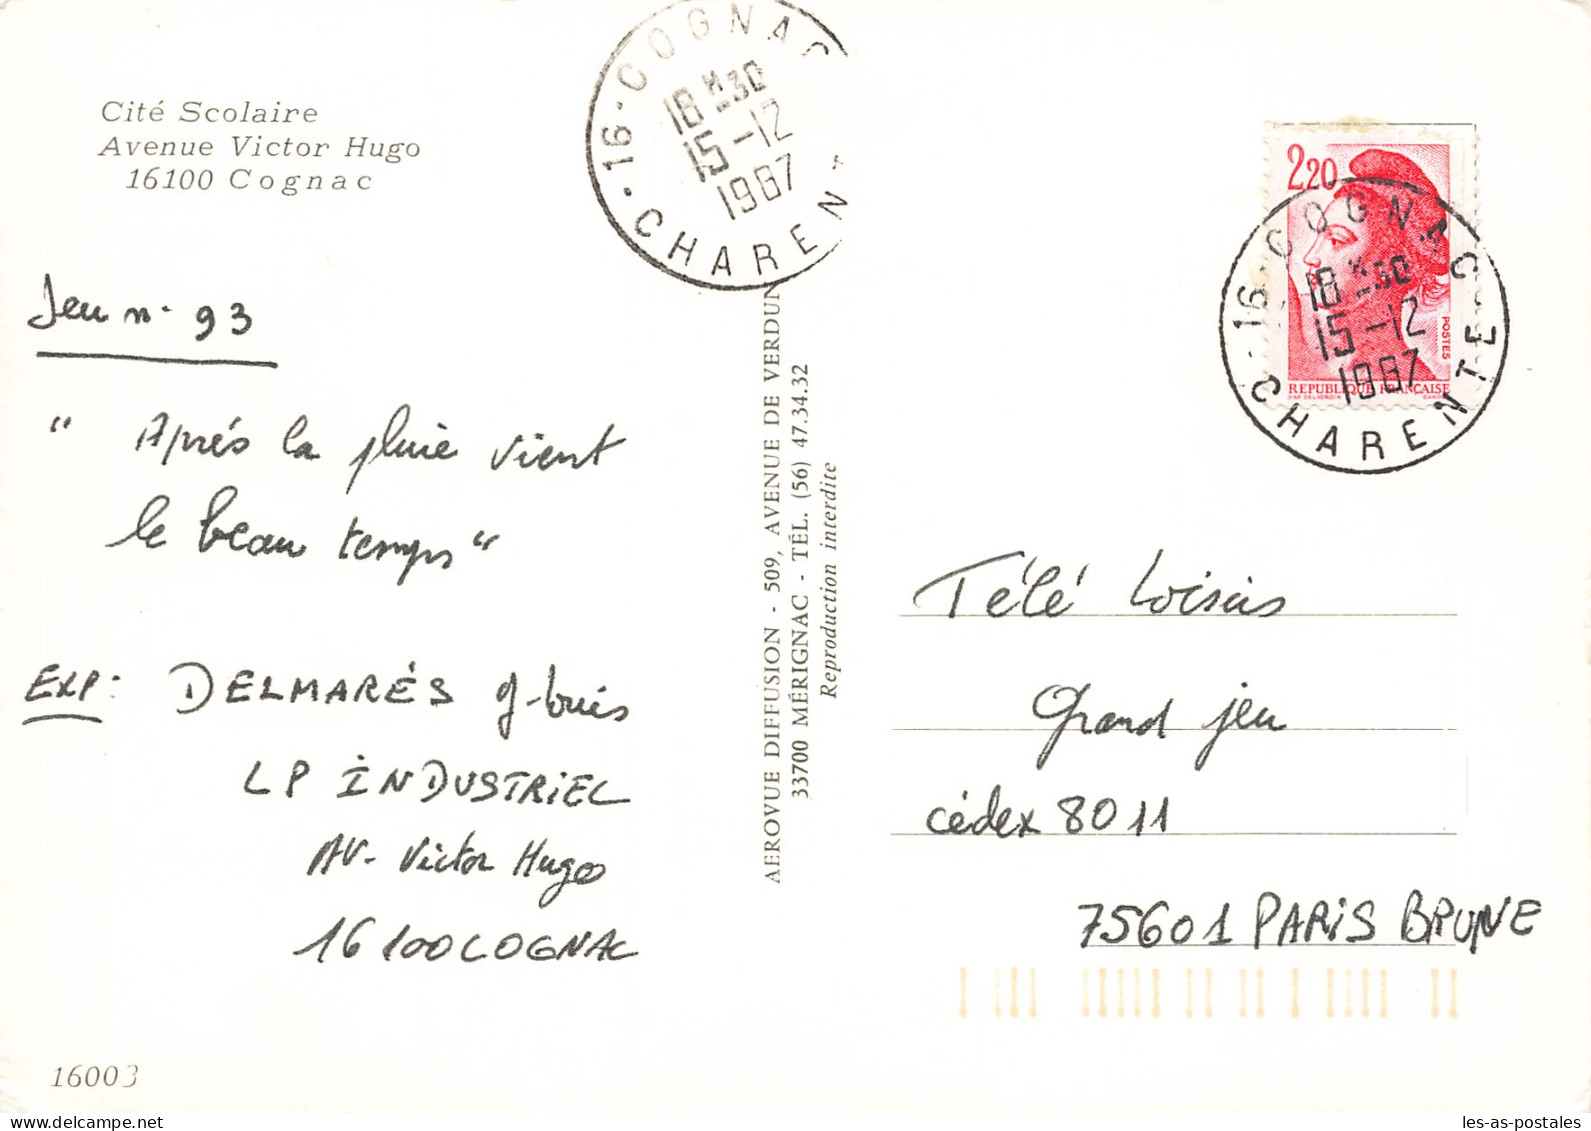 Cité Scolaire
Avenue Victor Hugo
16100 Cognac
16 - COGNAC
18 H 30
15 - 12
1987
CHARENT
Jeu n° 93
" Après la pluie vient
le beau temps "
EXP: DELMARÉS
LP INDUSTRIEL
AV. Victor Hugo
16100 COGNAC
16003
AEROVUE DIFFUSION - 509, AVENUE DE VERDUN
33700 MÉRIGNAC - TÉL. (56) 47.34.32
Reproduction interdite
2,20
POSTES
REPUBLIQUE FRANÇAISE
16 - COGNAC
18 H 30
15 - 12
1987
CHARENTE
Télé Loisirs
Grand jeu
Cédex 8011
75601 PARIS BRUNE
les-as-postales